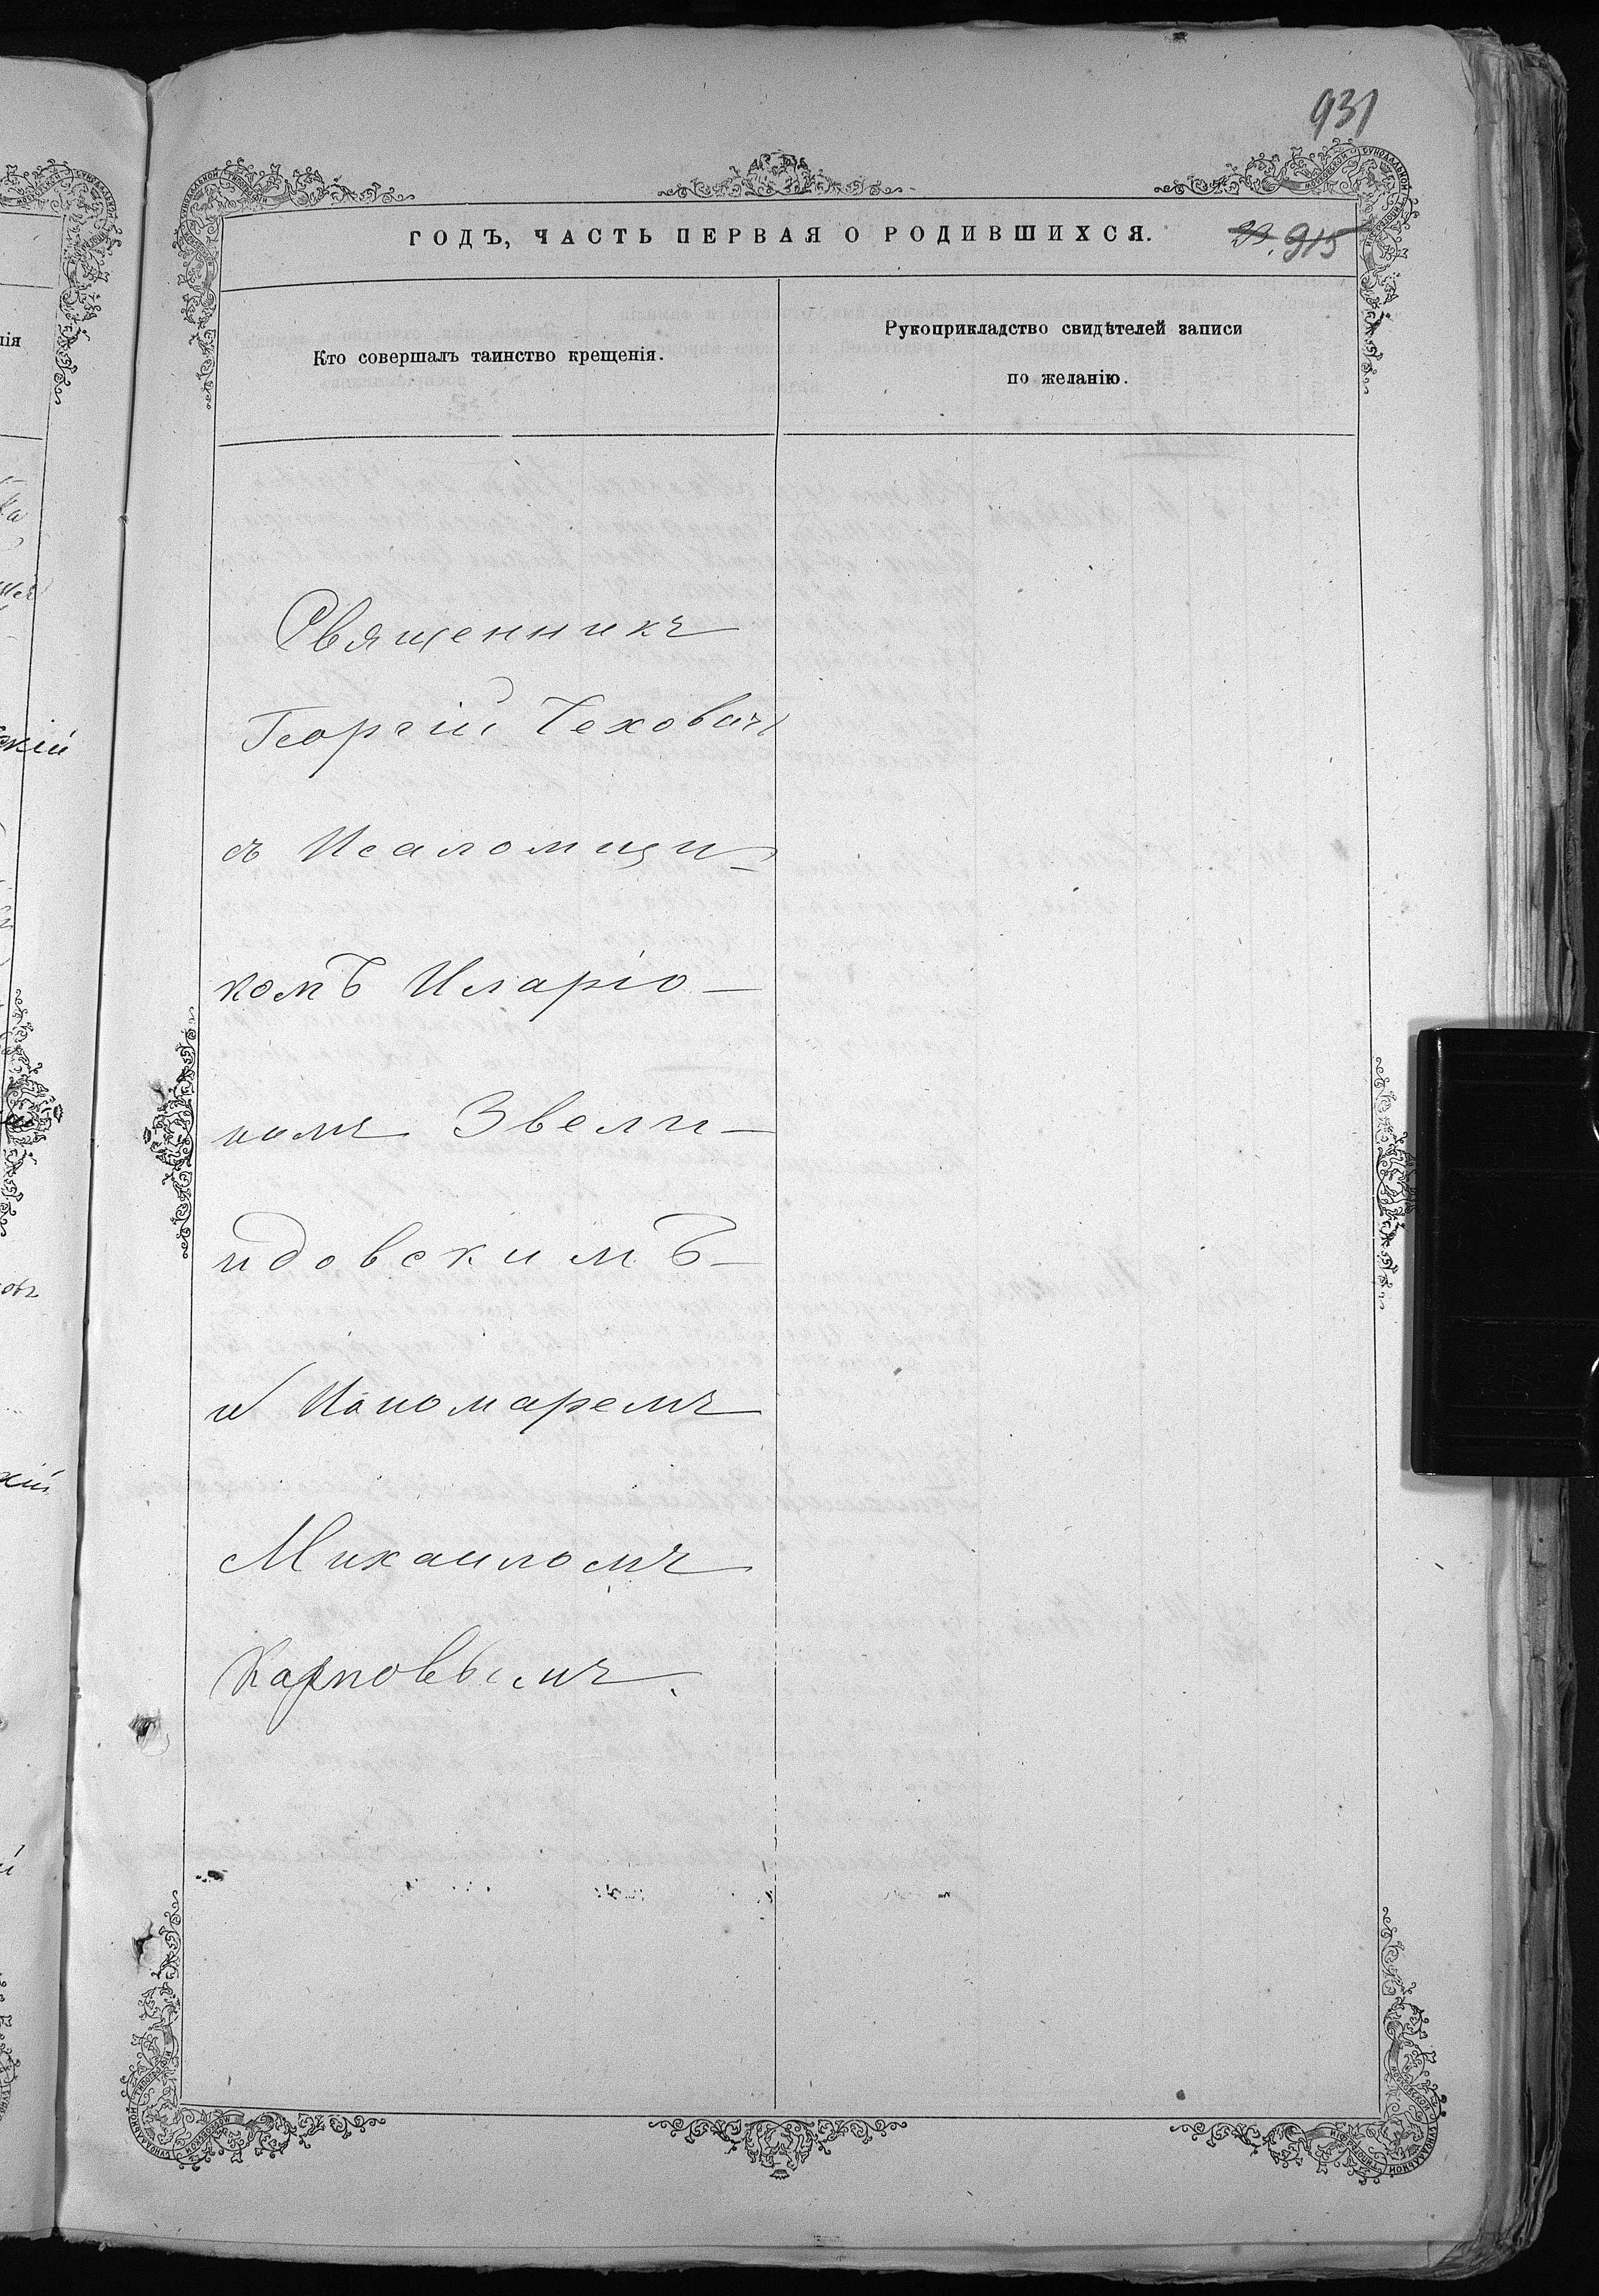 931
ГОДЪ, ЧАСТЬ ПЕРВАЯ О РОДИВШИХСЯ.
915
Кто совершалъ таинство крещенія.
Рукоприкладство свидѣтелей записи
по желанію.
Священникъ
Георгій Чеховичъ
съ Псаломщи-
комъ Иларіо-
номъ Звели-
идовскимъ
и Пономаремъ
Михаиломъ
Карповымъ.